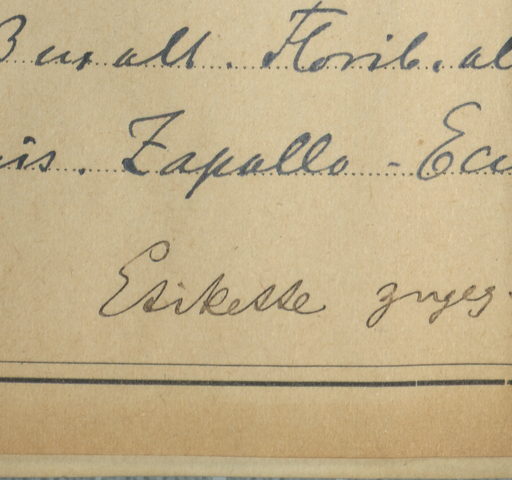 3 m alt. Florib. al
is. Zapallo - Ecu
Etikette zugeg.